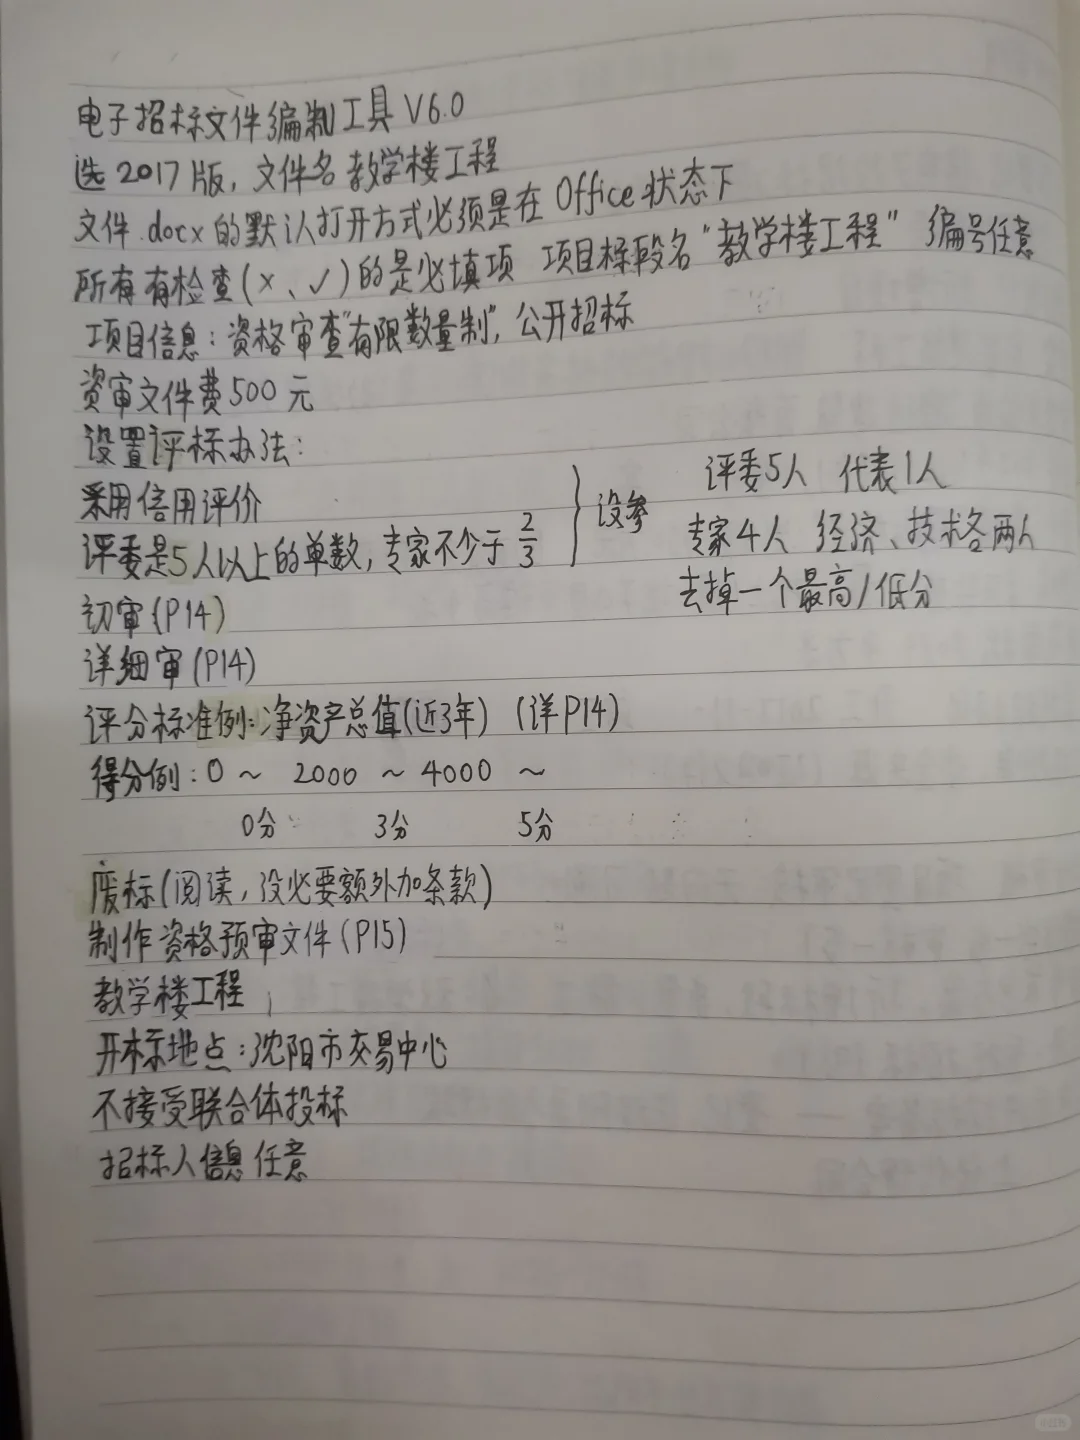 电子招标文件编制工具 V6.0
选 2017 版，文件名 教学楼工程
文件 .docx 的默认打开方式必须是在 Office 状态下
所有有检查(×、√)的是必填项 项目标段名“教学楼工程” 编号任意
项目信息：资格审查“有限数量制”，公开招标
资审文件费500元
设置评标办法：
采用信用评价
评委是5人以上的单数，专家不少于 2/3
} 设参
评委5人 代表1人
专家4人 经济、技术各两人
去掉一个最高/低分
初审(P14)
详细审(P14)
评分标准例：净资产总值(近3年) (详P14)
得分例：0 ～ 2000 ～ 4000 ～
0分 3分 5分
废标(阅读，没必要额外加条款)
制作资格预审文件(P15)
教学楼工程
开标地点：沈阳市交易中心
不接受联合体投标
招标人信息任意